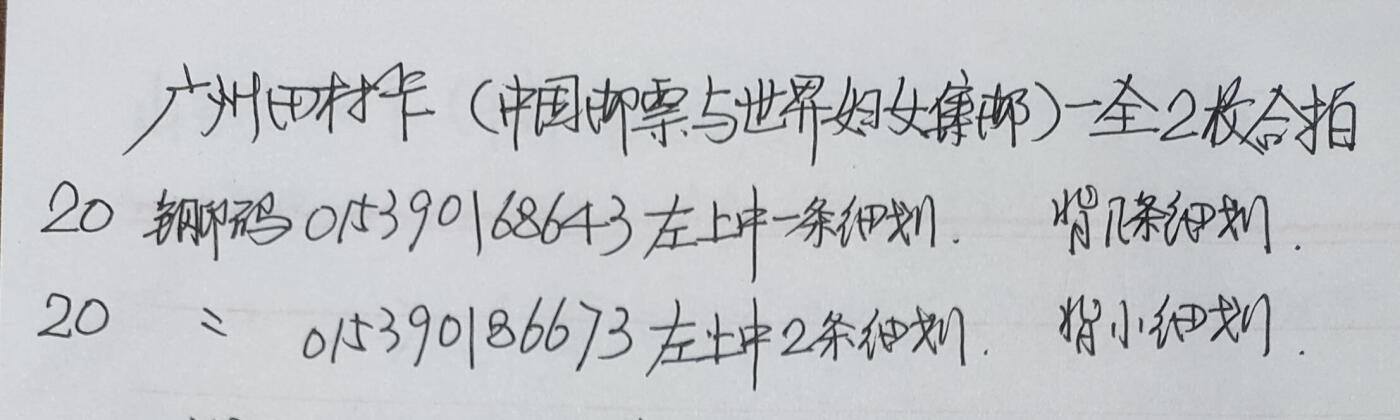 广州田村卡(中国邮票与世界妇女集邮)一全2枚合拍
20 钢印码 015390168643 左上中一条细划. 背几条细划.
20 〃 015390186673 左上中2条细划. 背小细划.